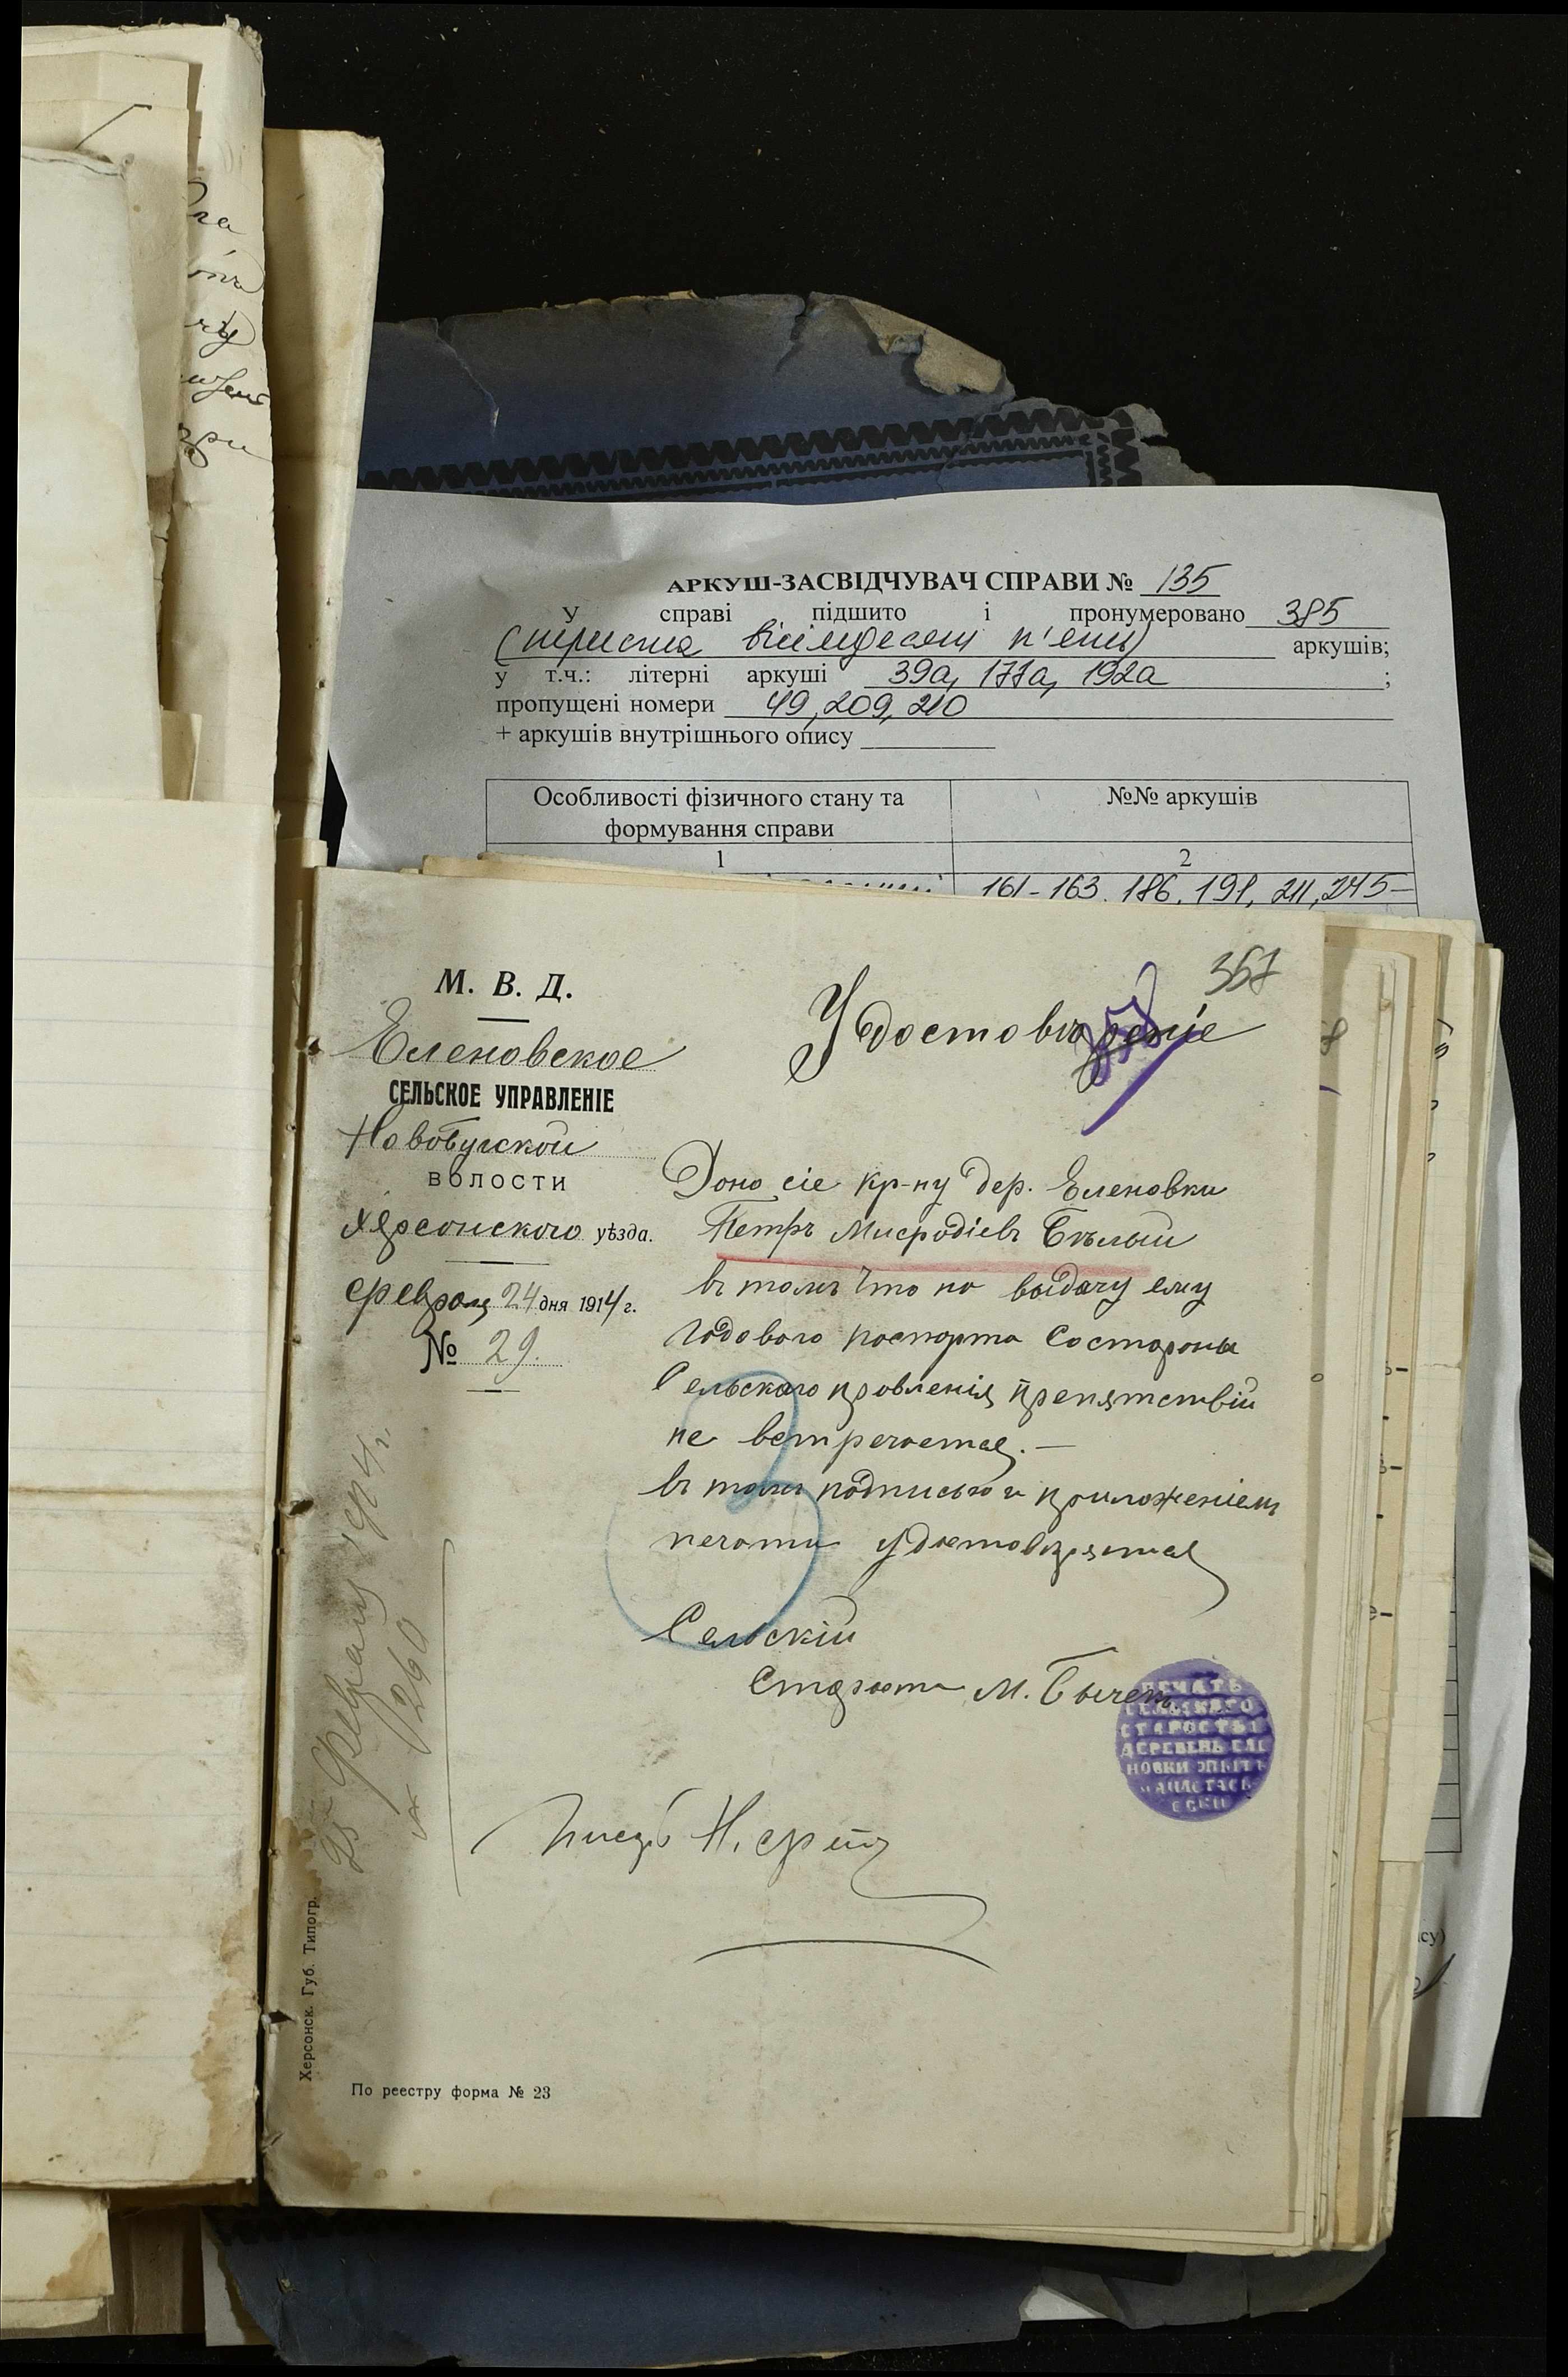 АРКУШ-ЗАСВІДЧУВАЧ СПРАВИ № 135
У справі підшито і пронумеровано 385
(триста вісімдесят п'ять) аркушів;
у т.ч.: літерні аркуші 39а, 177а, 192а ;
пропущені номери 49, 209, 210
+ аркушів внутрішнього опису
Особливості фізичного стану та формування справи
№№ аркушів
1
2
161-163. 186, 191, 211, 245-
367
М. В. Д.
Еленовское
СЕЛЬСКОЕ УПРАВЛЕНІЕ
Новобугской
ВОЛОСТИ
Херсонского уѣзда.
Февраля 24 дня 1914 г.
№ 29.
Удостовѣреніе
Дано сіе кр-ну дер. Еленовки
Петръ Мифодіевъ Бѣлый
въ томъ что на выдачу ему
Годового паспорта Состороны
Сельскаго правленія препятствій
не встречается. —
въ томъ подписью и приложеніемъ
печати удостоверяется
Сельскій
Староста М.
ПЕЧАТЬ
СЕЛЬСКАГО
СТАРОСТЫ
ДЕРЕВЕНЬ ЕЛЕ
НОВКИ
Писарь Н.
25 Февраля 1914 г.
№ 260
Херсонск. Губ. Типогр.
По реестру форма № 23